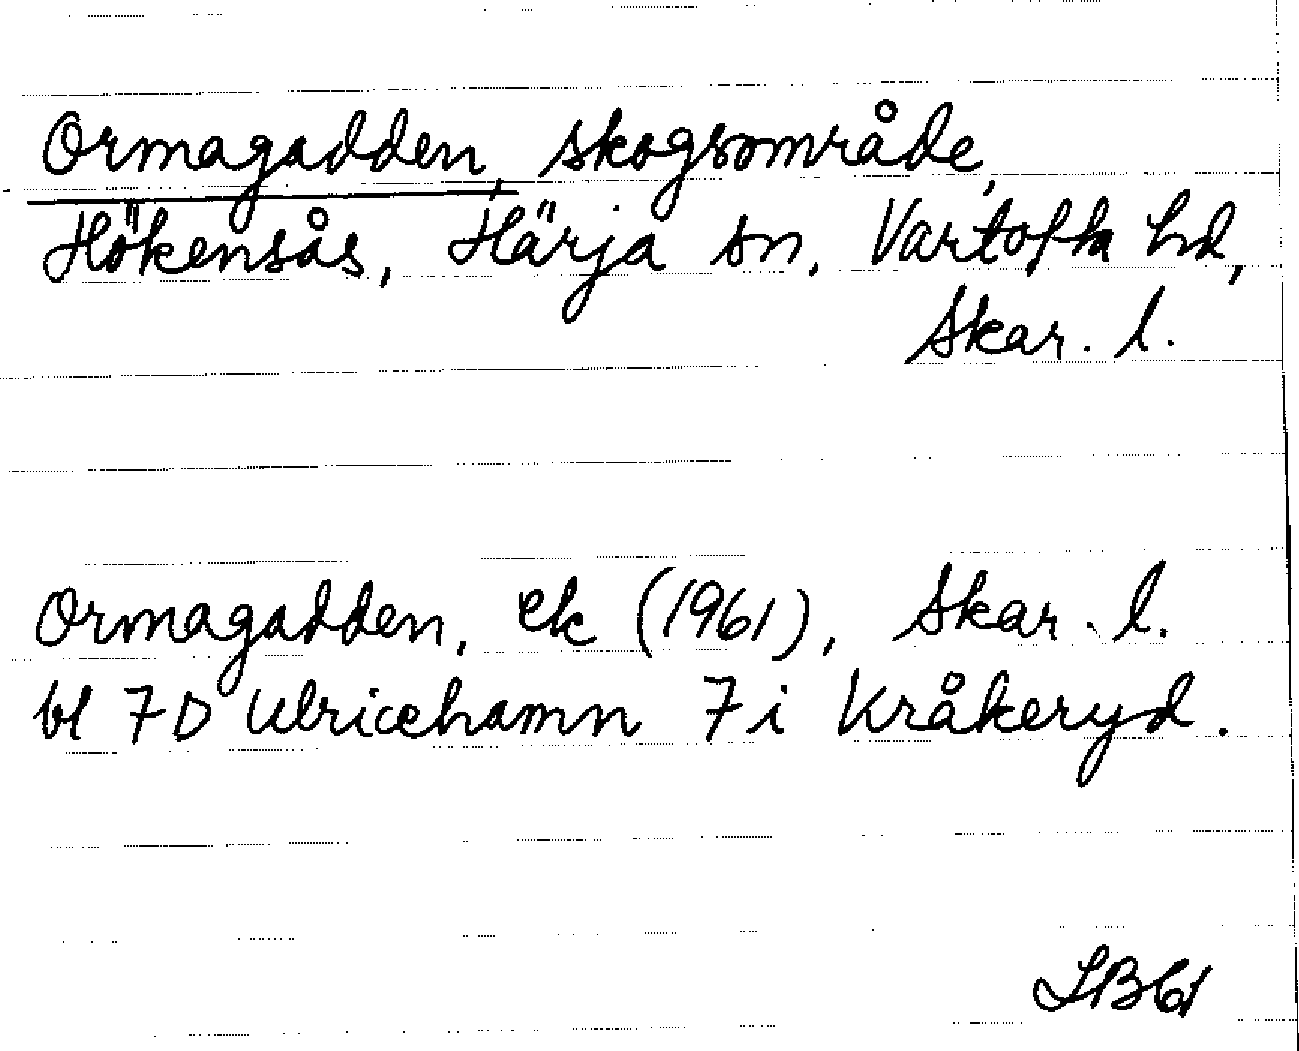 Ormagadden, skogsområde,
Hökensås, Härja sn, Vartofta hd,
Skar. l.
Ormagadden, ek (1961), Skar. l.
bl 7D Ulricehamn 7i Kråkeryd.
SB61